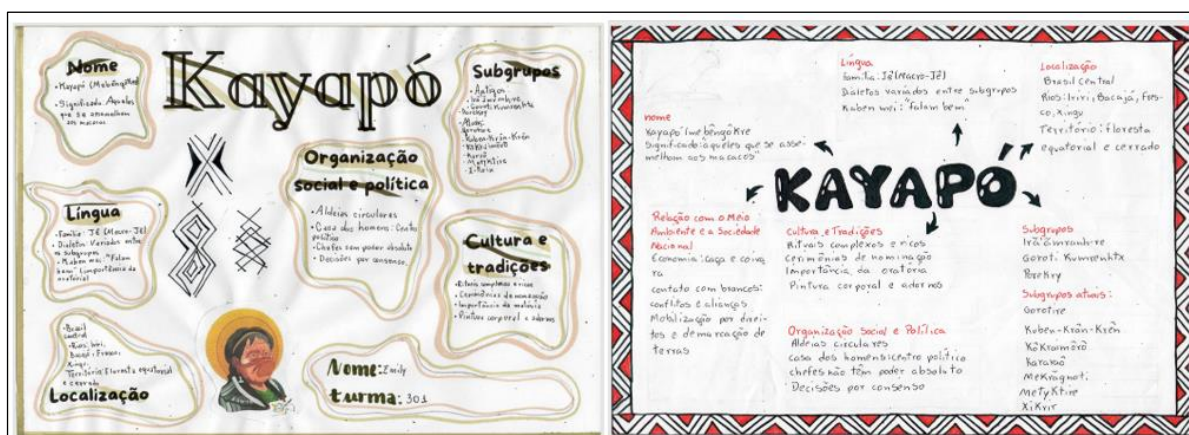 Kayapó
Nome
• Kayapó (Mebêngôkre)
• Significado: Aqueles
que se assemelham
aos macacos
Língua
• Família: Jê (Macro-Jê)
• Dialetos Variados entre
os subgrupos
"Falam
bem" (importância da
oratória)
• Brasil
central
• Rios:
Território: Floresta equatorial
e cerrado
Localização
Organização
social e política
• Aldeias circulares
• Casa dos homens: Centro
político
• Chefes sem poder absoluto
• Decisões por consenso.
Subgrupos
• Antigos:
Cultura e
tradições
• Rituais complexos e ricos
• Cerimônias de nomeação
• Importância da
• Pintura corporal e adornos
Nome: Emily
turma: 301
KAYAPÓ
nome
Kayapó/mebêngôkre
Significado: "aqueles que se asse-
melham aos macacos"
Língua
família: Jê (Macro-Jê)
Dialetos variados entre subgrupos
Kaben mei: "falam bem"
Localização
Brasil Central
Rios: Iriri, Bacajá, Fres-
co, Xingu
Território: floresta
equatorial e cerrado
Relação com o Meio
Ambiente e a Sociedade
Nacional
Economia: caça e coiva
ra
contato com brancos:
conflitos e alianças
Mobilização por direi-
tos e demarcação de
terras
Cultura e Tradições
Rituais complexos e ricos
Cerimônias de nominação
Importância da oratória
Pintura corporal e adornos
Organização Social e Política
Aldeias circulares
casa dos homens: centro político
chefes não têm poder absoluto
Decisões por consenso
Subgrupos
Irã'ãmranh-re
Goroti Kumrenhtx
Porekry
Subgrupos atuais:
Gorotire
Kuben-Krân-Krên
Kôkraimôrô
Kararaô
Mekrãgnoti
Metyktire
Xikrin